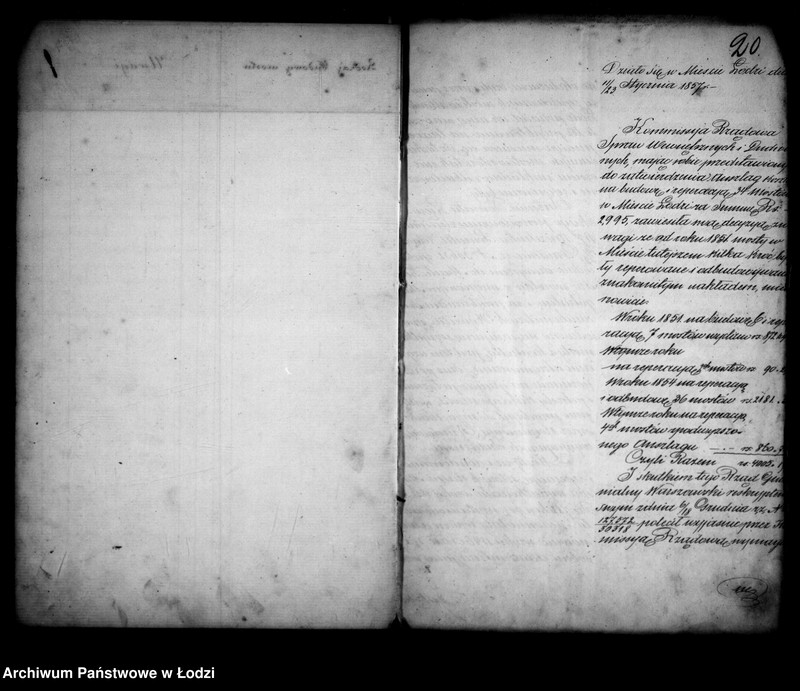 20.
Działo się w Mieście Łodzi dn
11/23 Stycznia 1857 r.
Kommissyja Rządowa
Spraw Wewnętrznych i Ducho
wnych, mając sobie przedstawiony
do zatwierdzenia Anszlag kosz
na budowę i reperacyą 34 Mostów
w Mieście Łodzi za Summę Rs.
2,995, zawiesiła swą decyzyą z u
wagi że od roku 1851 mosty w
Mieście tutejszem kilka kroć by
ły reperowane i odbudowywane
znakomitym nakładem, mia
nowicie.
W roku 1851 na budowę 6 i rep
racyą 7 mostów wydano rs 872
W tymże roku
na reperacyą mostów rs 90
W roku 1854 na reperacyą
i odbudowę 36 mostów rs 2181
W tymże roku na reperacyą
4ch mostów podług
nego Anszlagu rs 860
Czyli Razem rs 4005
I skutkiem tego Rząd Gube
rnialny Warszawski reskryptem
swym z dnia 6/18 Grudnia r.z. N
127,572 polecił wyjaśnić przez Ko
missyą Rządową
Archiwum Państwowe w Łodzi